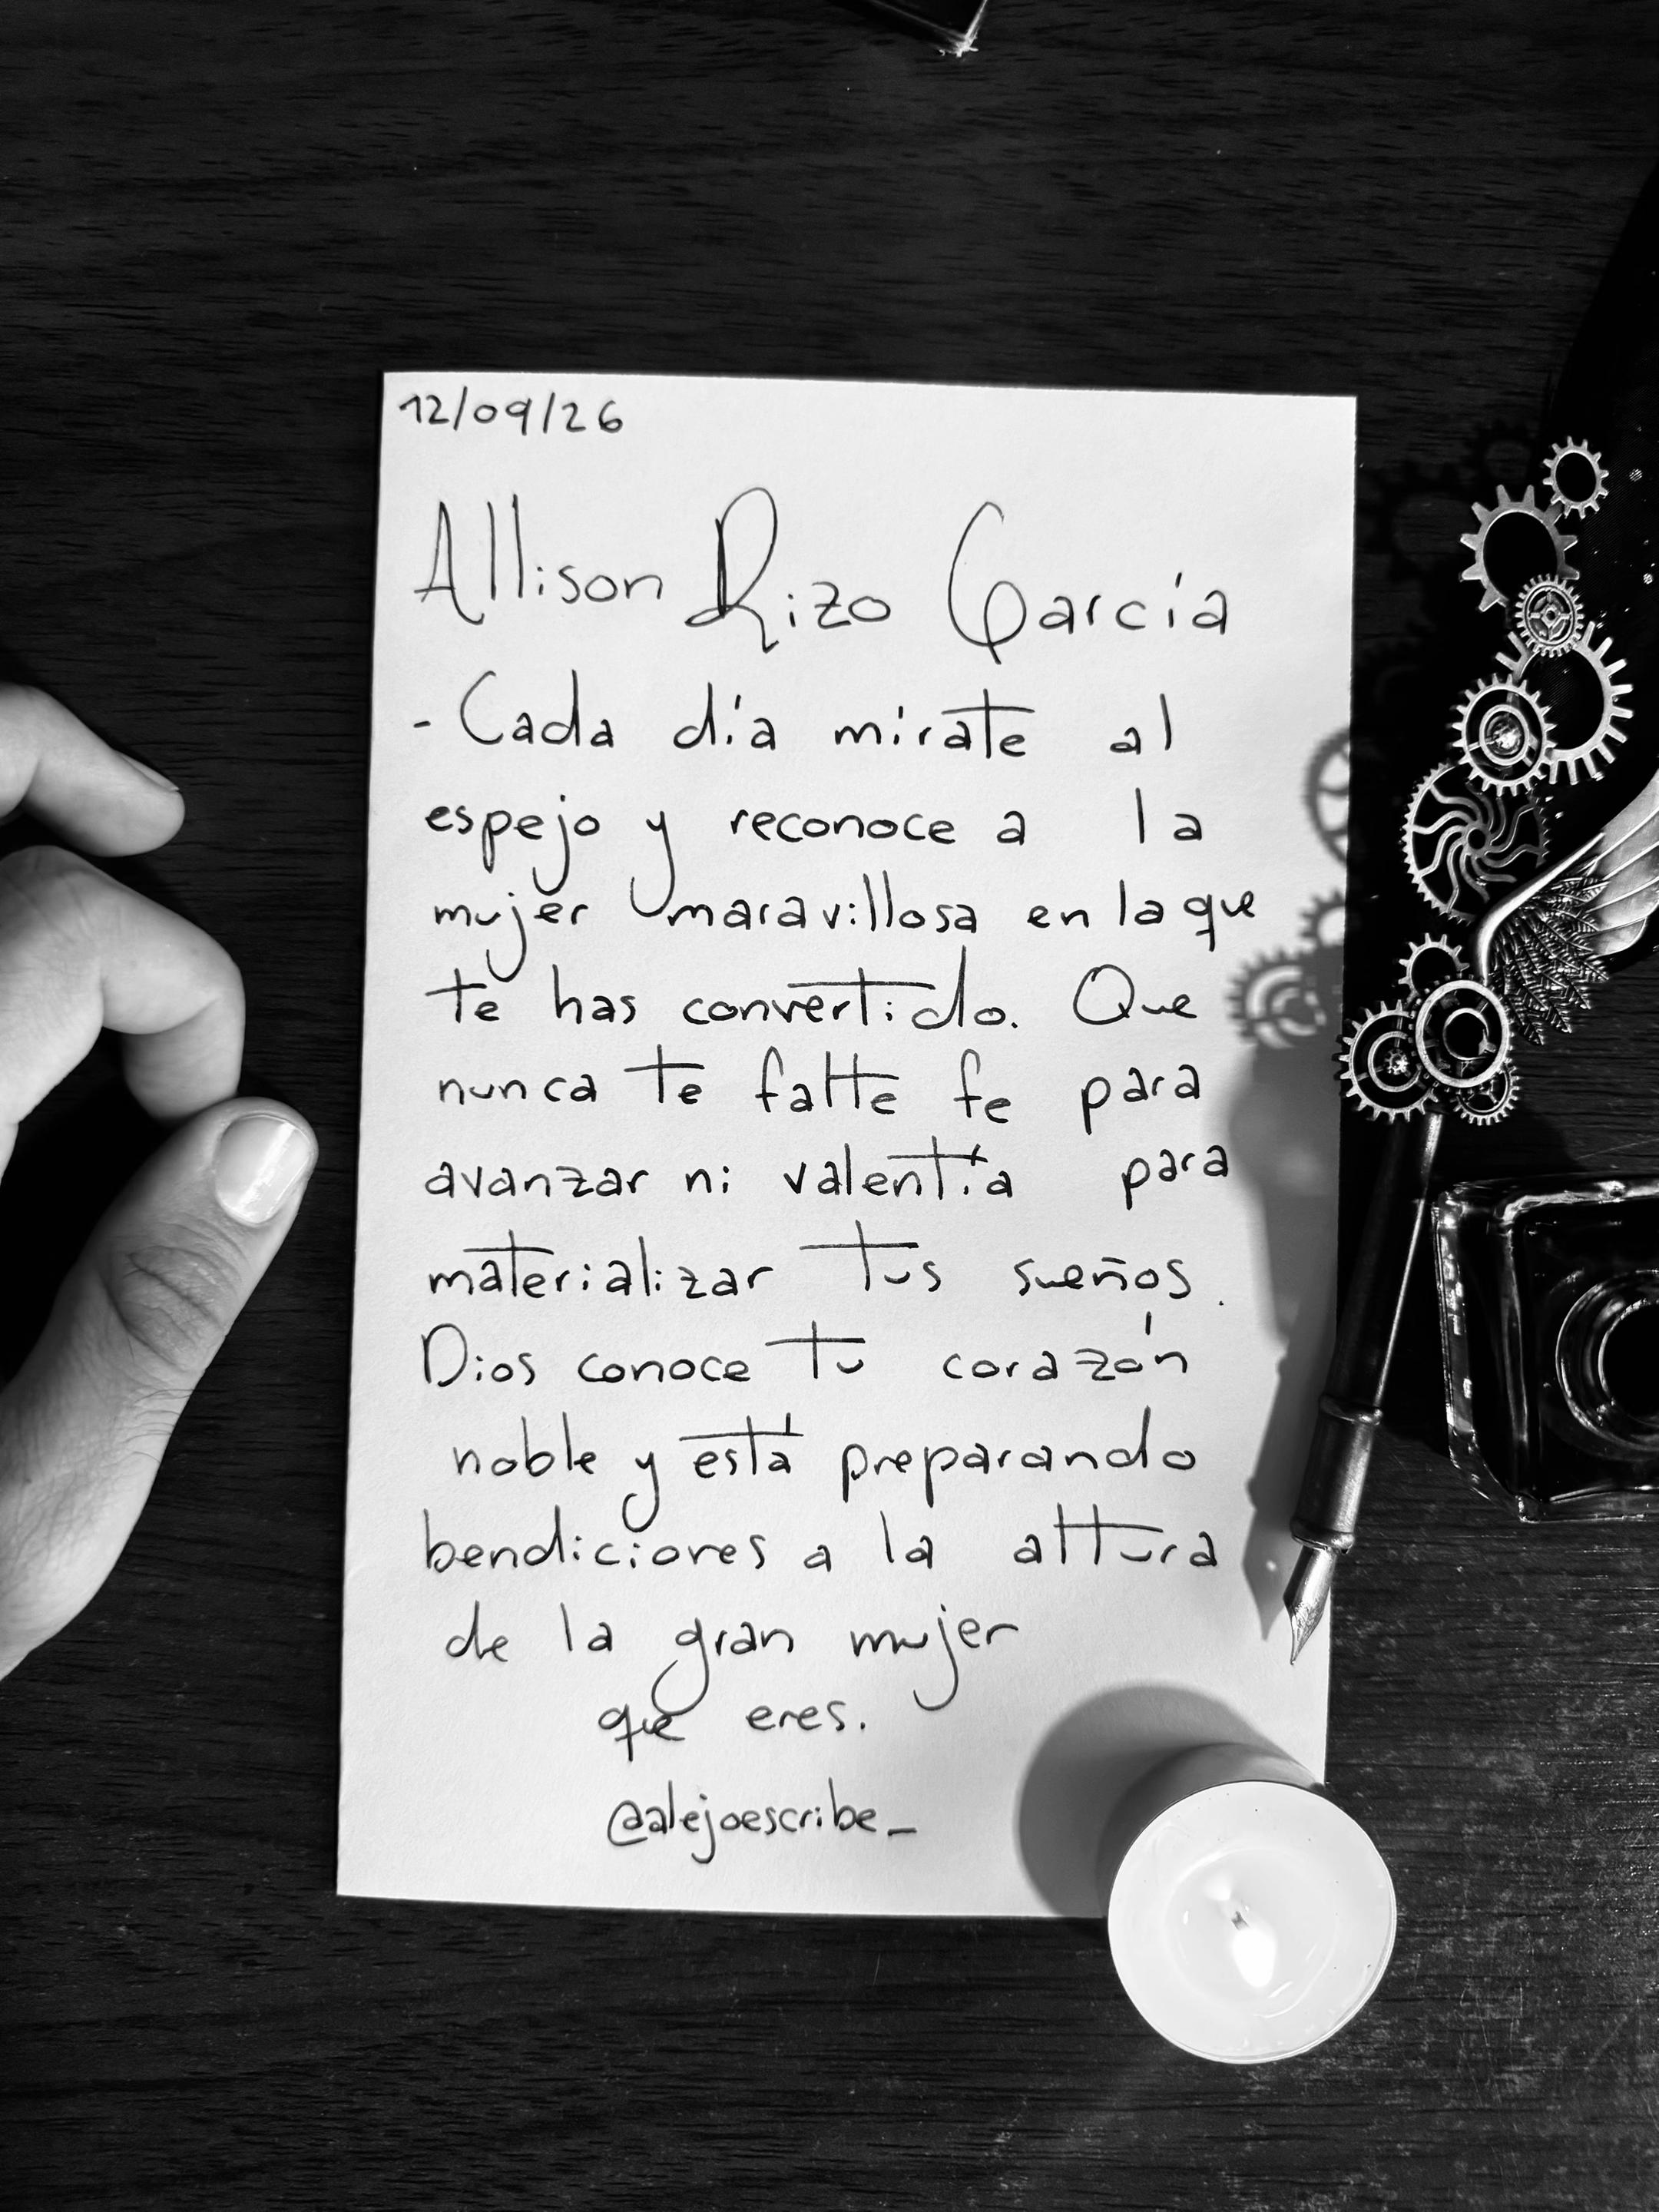 12/09/26
Allison Rizo García
- Cada día mírate al
espejo y reconoce a la
mujer maravillosa en la que
te has convertido. Que
nunca te falte fe para
avanzar ni valentía para
materializar tus sueños.
Dios conoce tu corazón
noble y está preparando
bendiciones a la altura
de la gran mujer
que eres.
@alejoescribe_